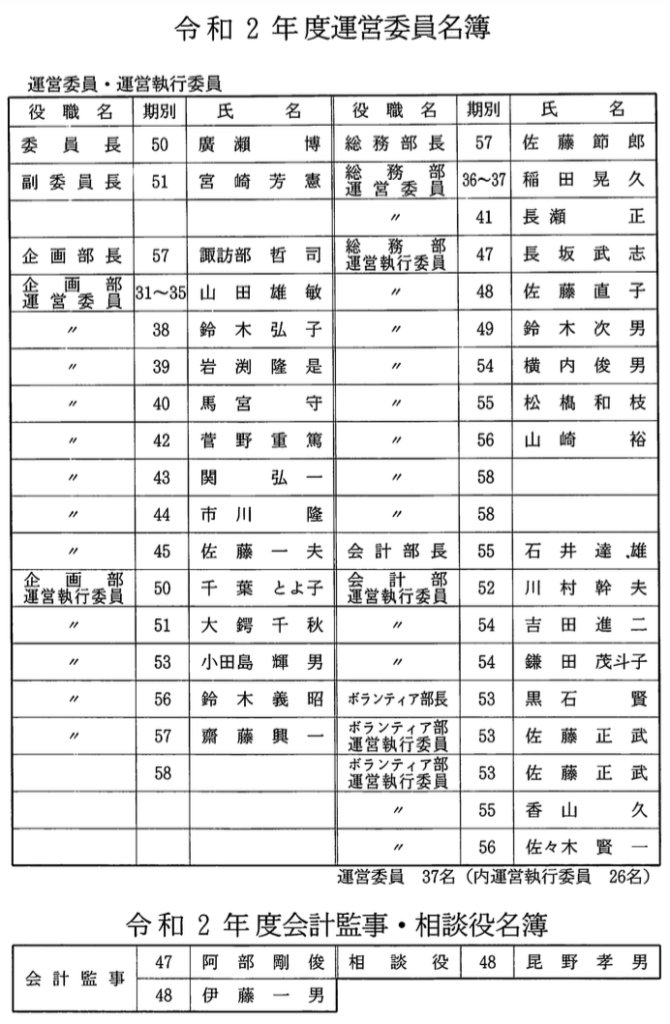 令和2年度運営委員名簿
運営委員・運営執行委員
役職名 期別 氏名 役職名 期別 氏名
委員長 50 廣瀬博 総務部長 57 佐藤節郎
副委員長 51 宮崎芳憲 総務部運営委員 36～37 稲田晃久
〃 41 長瀬正
企画部長 57 諏訪部哲司 総務部運営執行委員 47 長坂武志
企画部運営委員 31～35 山田雄敏 〃 48 佐藤直子
〃 38 鈴木弘子 〃 49 鈴木次男
〃 39 岩渕隆是 〃 54 横内俊男
〃 40 馬宮守 〃 55 松槗和枝
〃 42 菅野重篤 〃 56 山崎裕
〃 43 関弘一 〃 58
〃 44 市川隆 〃 58
〃 45 佐藤一夫 会計部長 55 石井達雄
企画部運営執行委員 50 千葉とよ子 会計部運営執行委員 52 川村幹夫
〃 51 大鍔千秋 〃 54 吉田進二
〃 53 小田島輝男 〃 54 鎌田茂斗子
〃 56 鈴木義昭 ボランティア部長 53 黒石賢
〃 57 齋藤興一 ボランティア部運営執行委員 53 佐藤正武
58 ボランティア部運営執行委員 53 佐藤正武
〃 55 香山久
〃 56 佐々木賢一
運営委員 37名（内運営執行委員 26名）
令和2年度会計監事・相談役名簿
会計監事 47 阿部剛俊 相談役 48 昆野孝男
48 伊藤一男